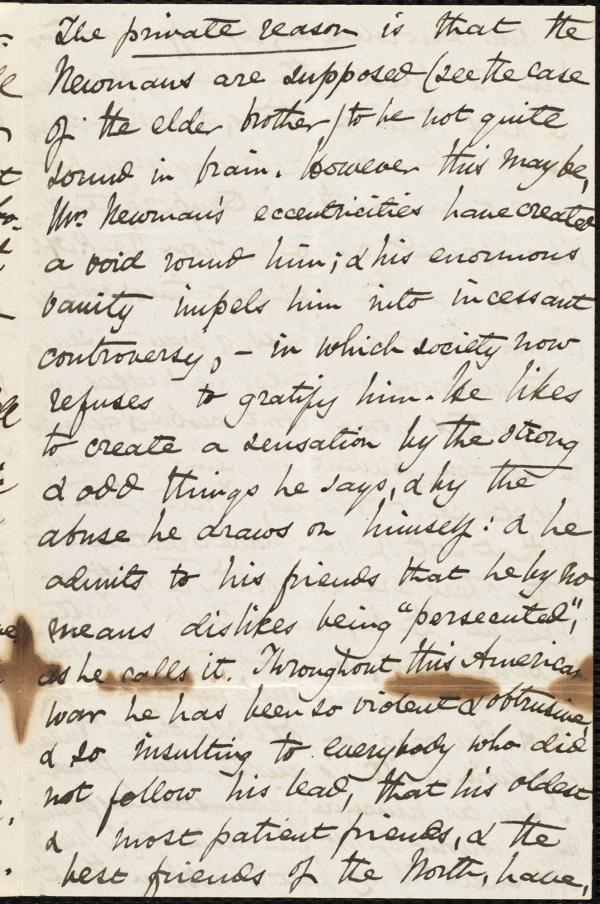 The private reason is that the
Newmans are supposed (see the case
of the elder brother) to be not quite
sound in brain. However this may be,
Mr. Newman's eccentricities have created
a void round him; & his enormous
vanity impels him into incessant
controversy, – in which society now
refuses to gratify him. He likes
to create a sensation by the strong
& odd things he says, & by the
abuse he draws on himself: & he
admits to his friends that he by no
means dislikes being "persecuted",
as he calls it. Throughout this American
war he has been so violent & obtrusive,
& so insulting to everybody who did
not follow his lead, that his oldest
& most patient friends, & the
best friends of the North, have,